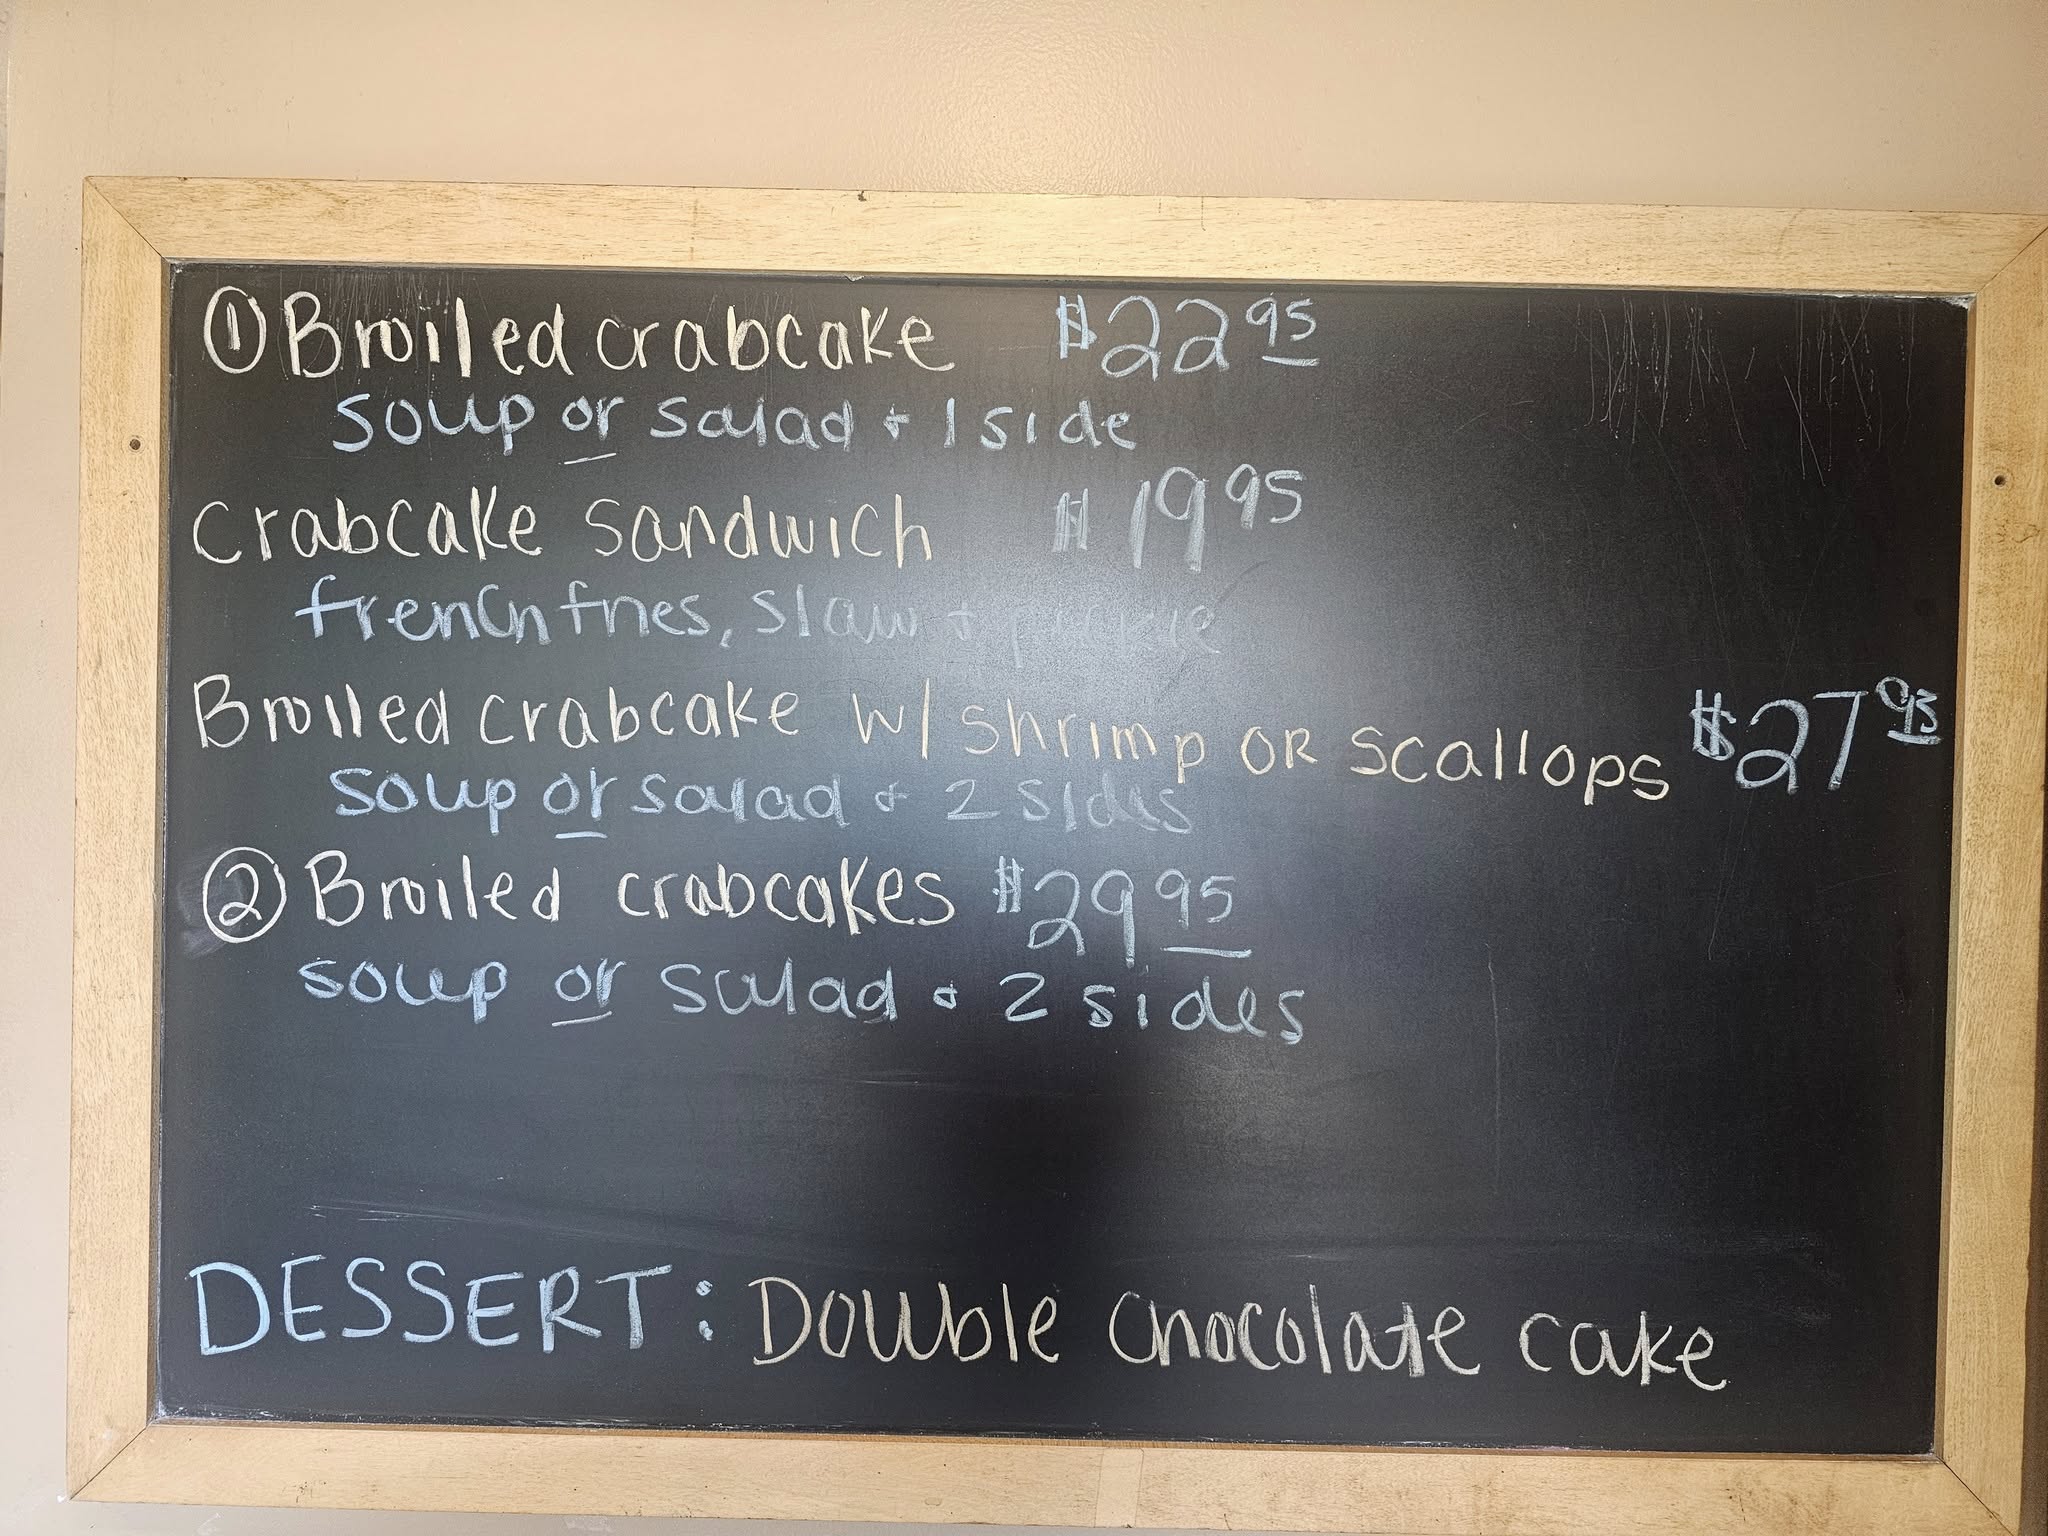 ① Broiled crabcake $22 95
soup or salad + 1 side
Crabcake sandwich $19 95
french fries, slaw + pickle
Broiled crabcake w/ shrimp OR scallops $27 95
soup or salad + 2 sides
② Broiled crabcakes $29 95
soup or salad + 2 sides
DESSERT: Double chocolate cake